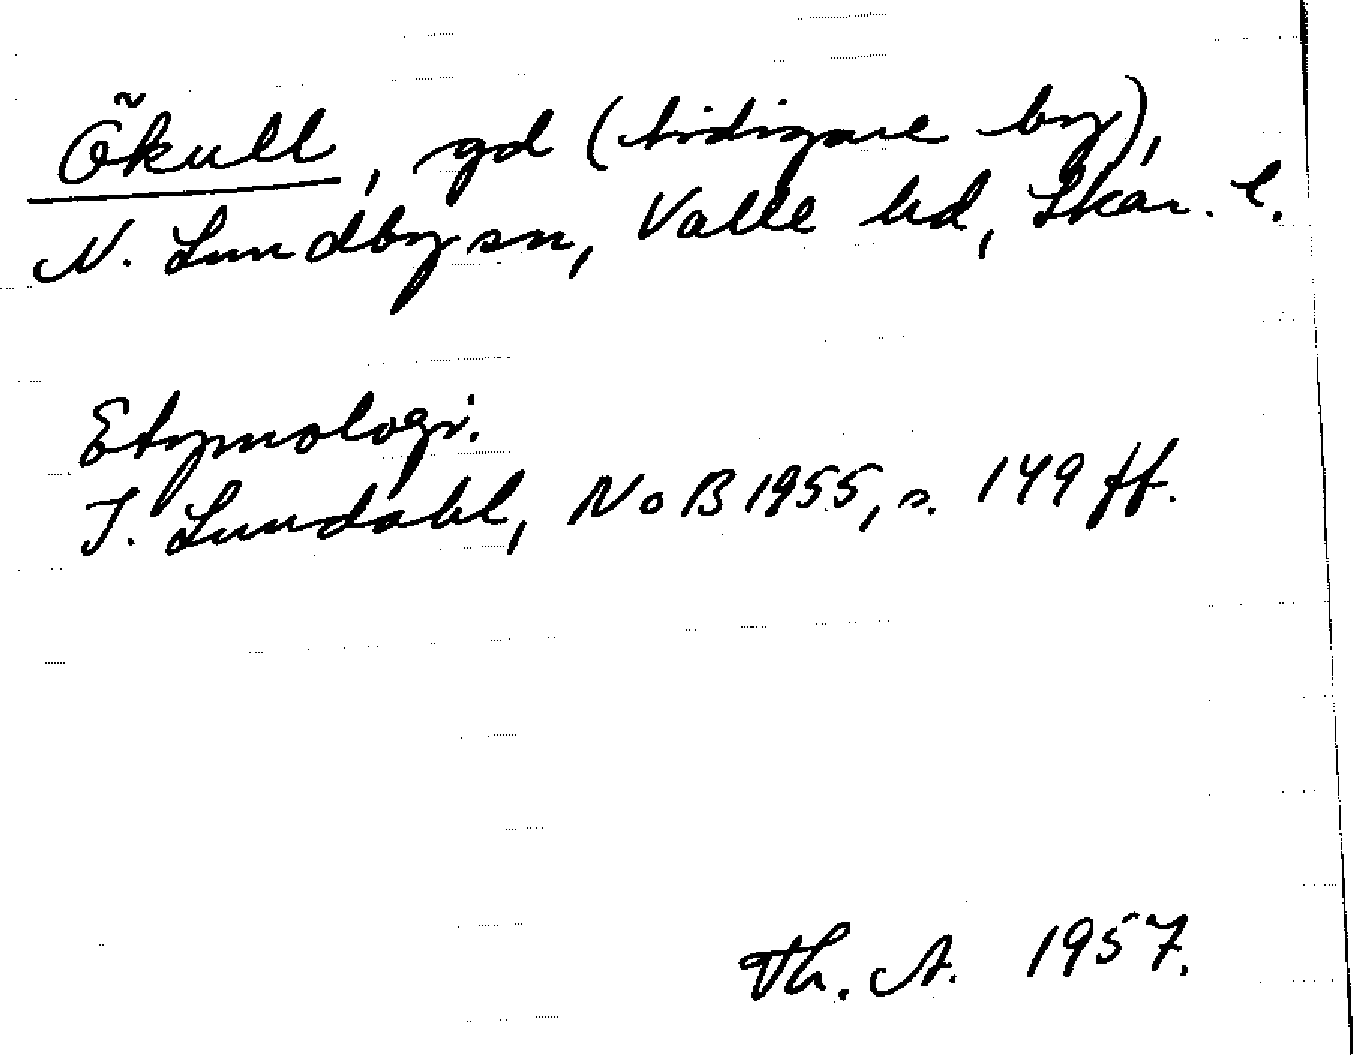 Ökull, gd (tidigare by),
N. Lundby sn, Valle hd, Skar. l.
Etymologi.
I. Lundahl, NoB 1955, s. 149 ff.
Th. A. 1957.